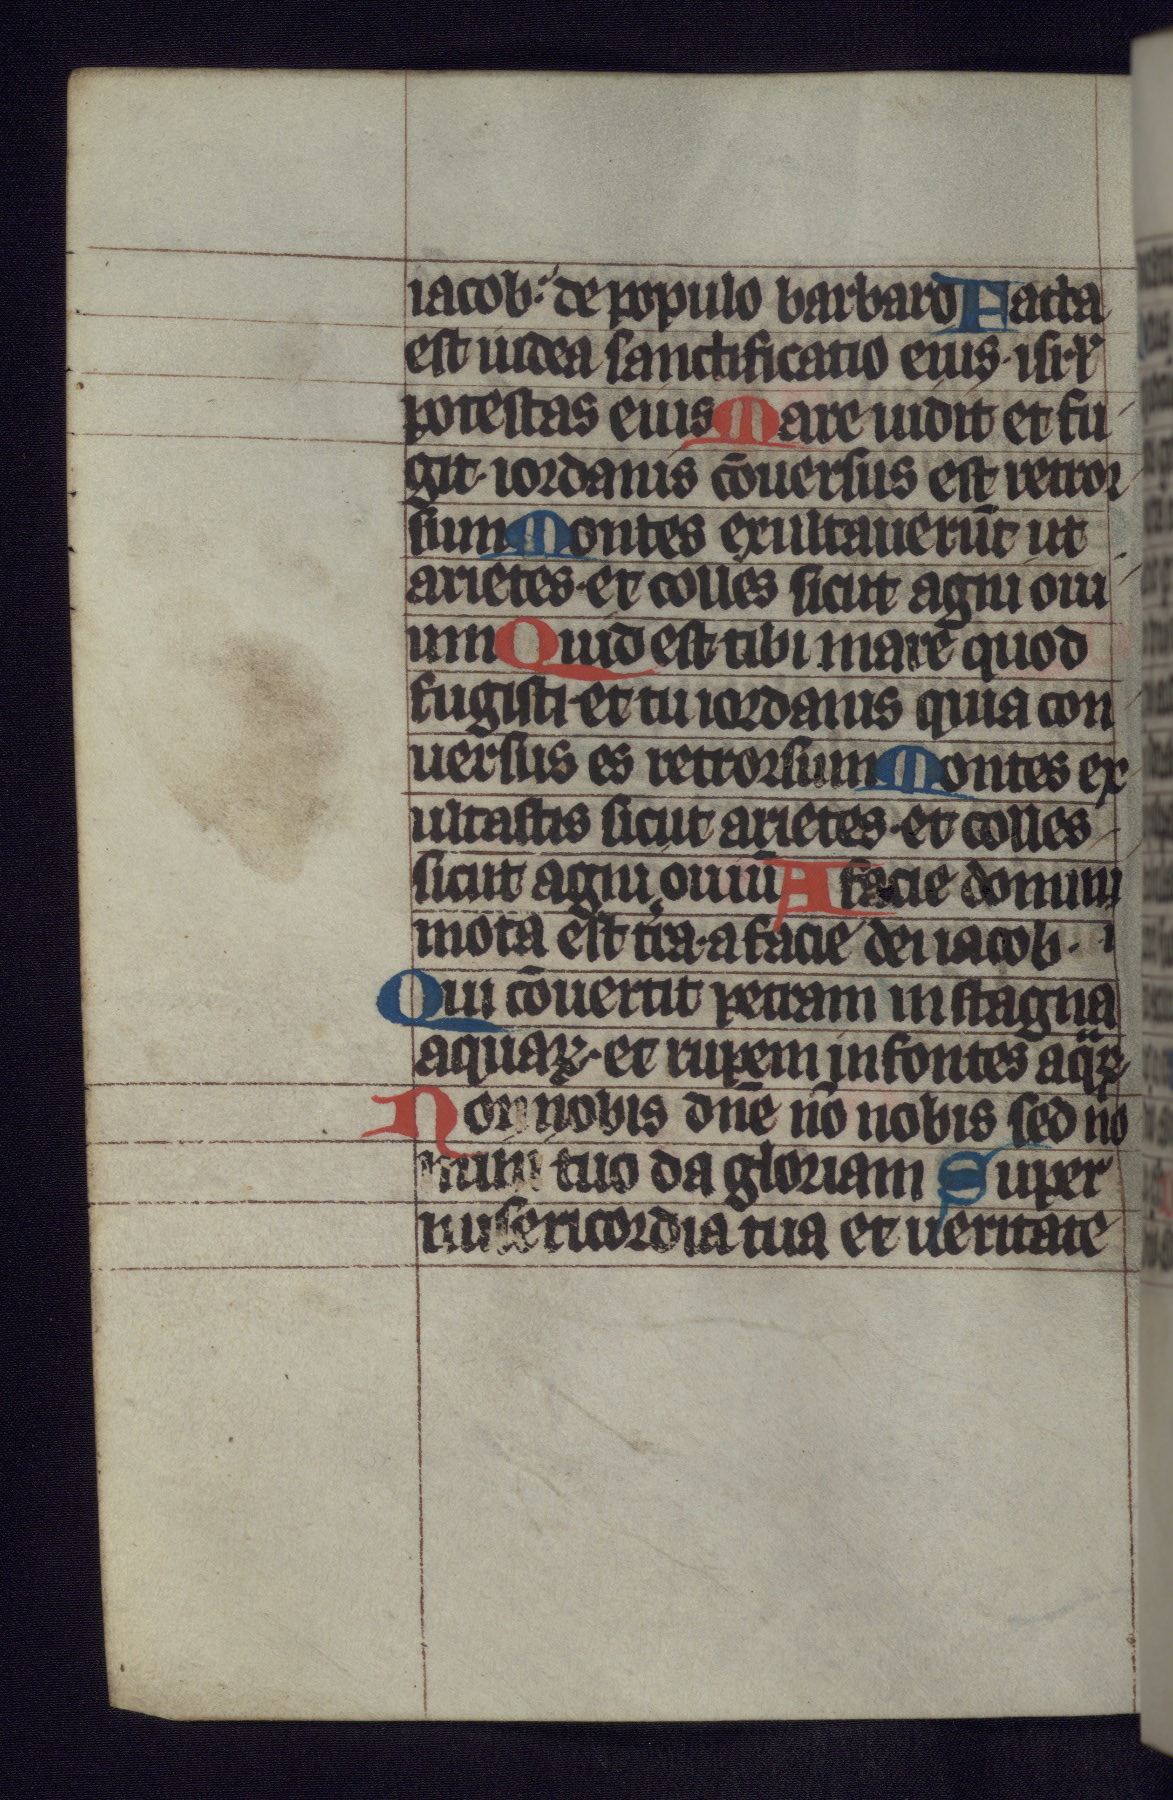 iacob: de populo barbaro Facta
est iudea sanctificatio eius· isrl̄
potestas eius Mare uidit et fu
git· iordanis cōuersus est retror
sum Montes exultauerūt ut
arietes· et colles sicut agni oui
um Quid est tibi mare quod
fugisti· et tu iordanis quia con
uersus es retrorsum Montes ex
ultastis sicut arietes· et colles
sicut agni ouiū A facie domini
mota est tr̄a· a facie dei iacob·
Qui cōuertit petram in stagna
aquaꝝ· et rupem in fontes aqꝝ
Non nobis dn̄e nō nobis sed no
mini tuo da gloriam Super
misericordia tua et ueritate